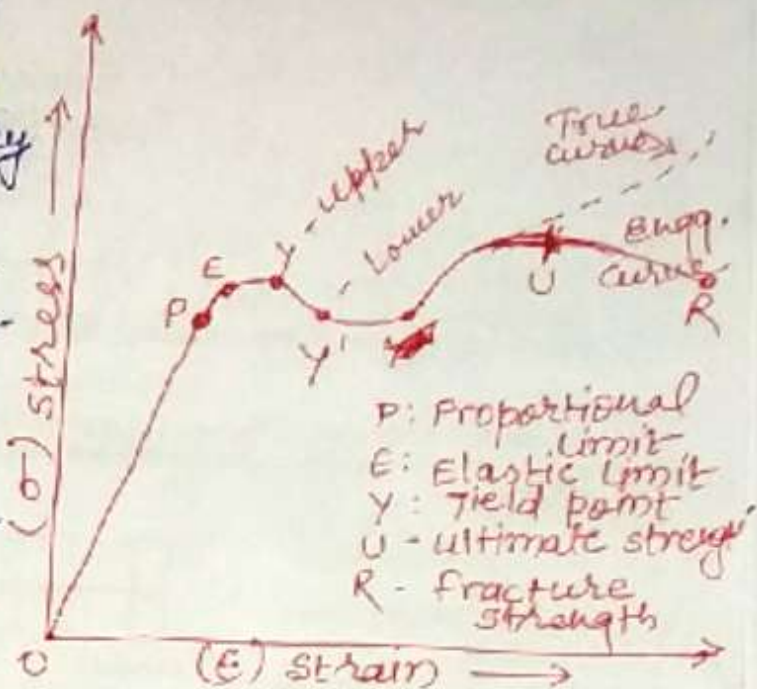 y
True
curve
Upper
Lower
Y
E
P
Y'
Engg.
curve
U
R
(σ) stress
P: Proportional
Limit
E: Elastic Limit
Y: Yield point
U - ultimate streng
R - fracture
strength
O
(ε) strain